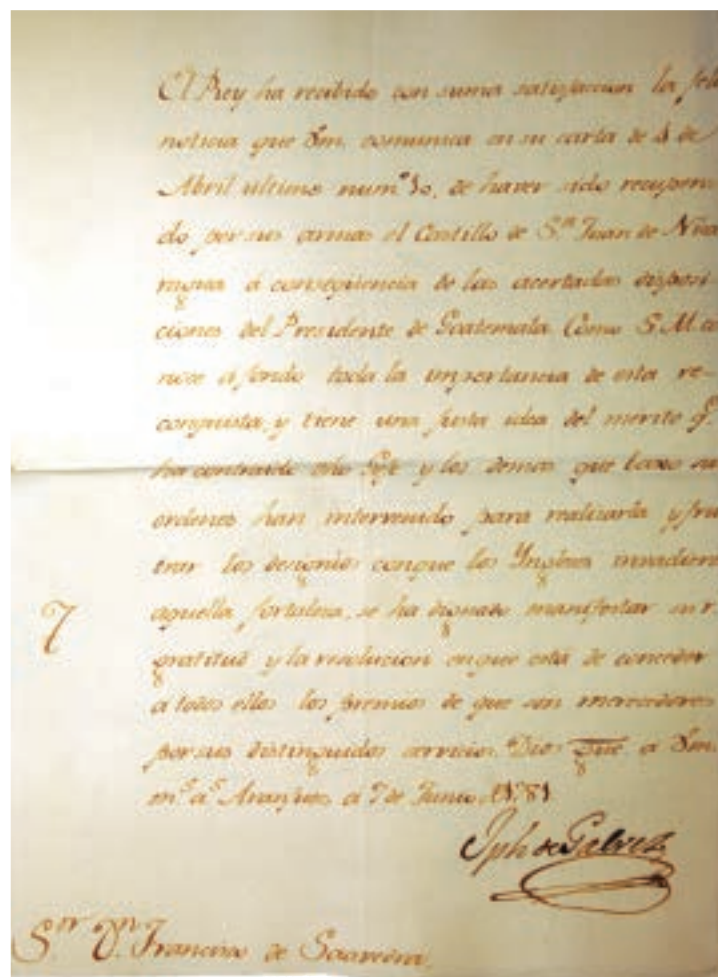 El Rey ha recibido con suma satisfaccion la feli
noticia que Vm. comunica en su carta de 4 de
Abril ultimo num.º 10, de haver sido recupera
do por sus armas el Castillo de S.ⁿ Juan de Nica
ragua á conseqüencia de las acertadas disposi
ciones del Presidente de Goatemala. Como S. M. co
noce á fondo toda la importancia de esta re-
conquista, y tiene una justa idea del merito q.ᵉ
ha contraido dho Gefe y los demas que baxo su
ordenes han intervenido para realizarla y frus
trar los designios conque los Yngleses invadieron
aquella fortaleza, se ha dignado manifestar su r.
gratitud y la resolucion en que está de conceder
a todos ellos los premios de que son merecedores
por sus distinguidos servicios. Dios gue a Vm.
m.ˢ a.ˢ Aranjuez a 7 de Junio de 1781
Jph de Galvez
7
S.ᵒʳ Dⁿ. Francisco de Saavedra.